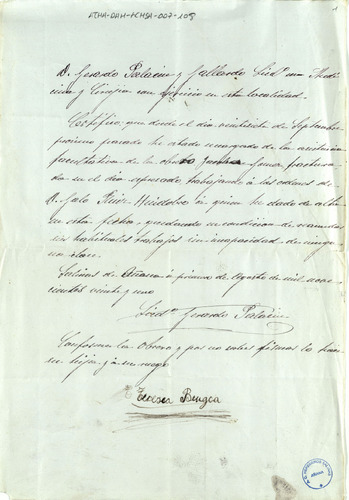 ATHA-DAH-ACHSA-007-105
D. Gerardo Palacios y Gallardo Licdo en Medi
cina y Cirugia con ejercicio en esta localidad.
Certifico: que desde el dia veintisiete de Septiembre
proximo pasado he estado encargado de la asistencia
facultativa de la obrera
en el dia expresado trabajando á las ordenes de
D. Galo Ruiz á quien he dado de alta
en esta fecha, quedando en condicion de reanudar
sus habituales trabajos sin incapacidad de ningu
na clase.
Salinas de Añana á primero de Agosto de mil nove
cientos veinte y uno
Licdo Gerardo Palacios
Conforme la Obrera y por no saber firmar lo hace
su hija á su ruego
Teresa